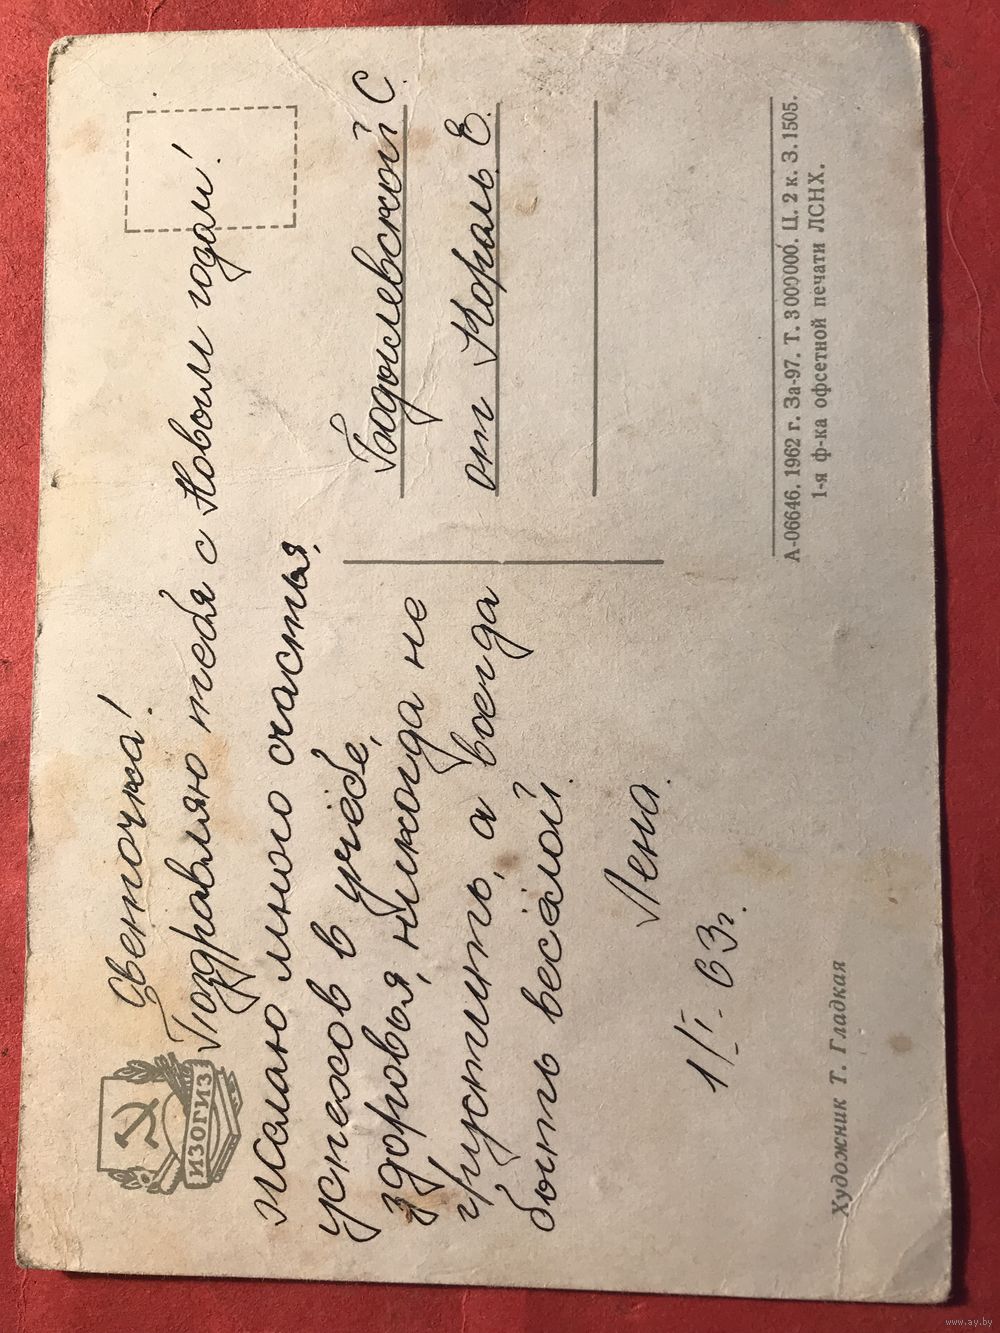 ИЗОГИЗ
Светочка!
Поздравляю тебя с Новым годом!
Желаю много счастья,
успехов в учёбе,
здоровья, никогда не
грустить, а всегда
быть весёлой.
Лена.
1/I-63г.
С.
от Король Е.
Художник Т. Гладкая
А-06646. 1962 г. За-97. Т. 3000000. Ц. 2 к. З. 1505.
1-я ф-ка офсетной печати ЛСНХ.
www.ay.by